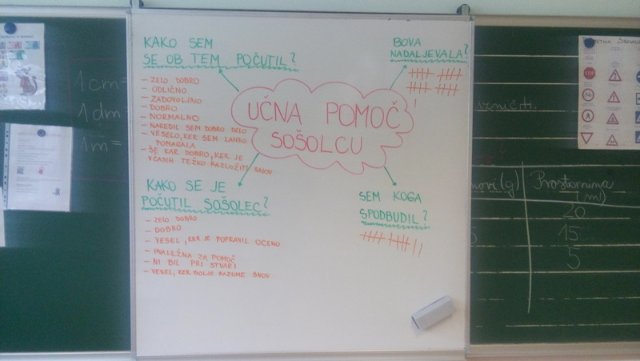 KAKO SEM
SE OB TEM POČUTIL?
- ZELO DOBRO
- ODLIČNO
- ZADOVOLJNO
- DOBRO
- NORMALNO
- NAREDIL SEM DOBRO DELO
- VESELO, KER SEM LAHKO
POMAGALA
- ŠE KAR DOBRO, KER JE
VČASIH TEŽKO RAZLOŽITI SNOV
BOVA
NADALJEVALA?
UČNA POMOČ
SOŠOLCU
KAKO SE JE
POČUTIL SOŠOLEC?
- ZELO DOBRO
- DOBRO
- VESEL, KER JE POPRAVIL OCENO
- HVALEŽNA ZA POMOČ
- NI BIL PRI STVARI
- VESEL, KER BOLJE RAZUME SNOV
SEM KOGA
SPODBUDIL?
1cm=
1dm
1m=
(g)
Prostornina
(ml)
20
15
5